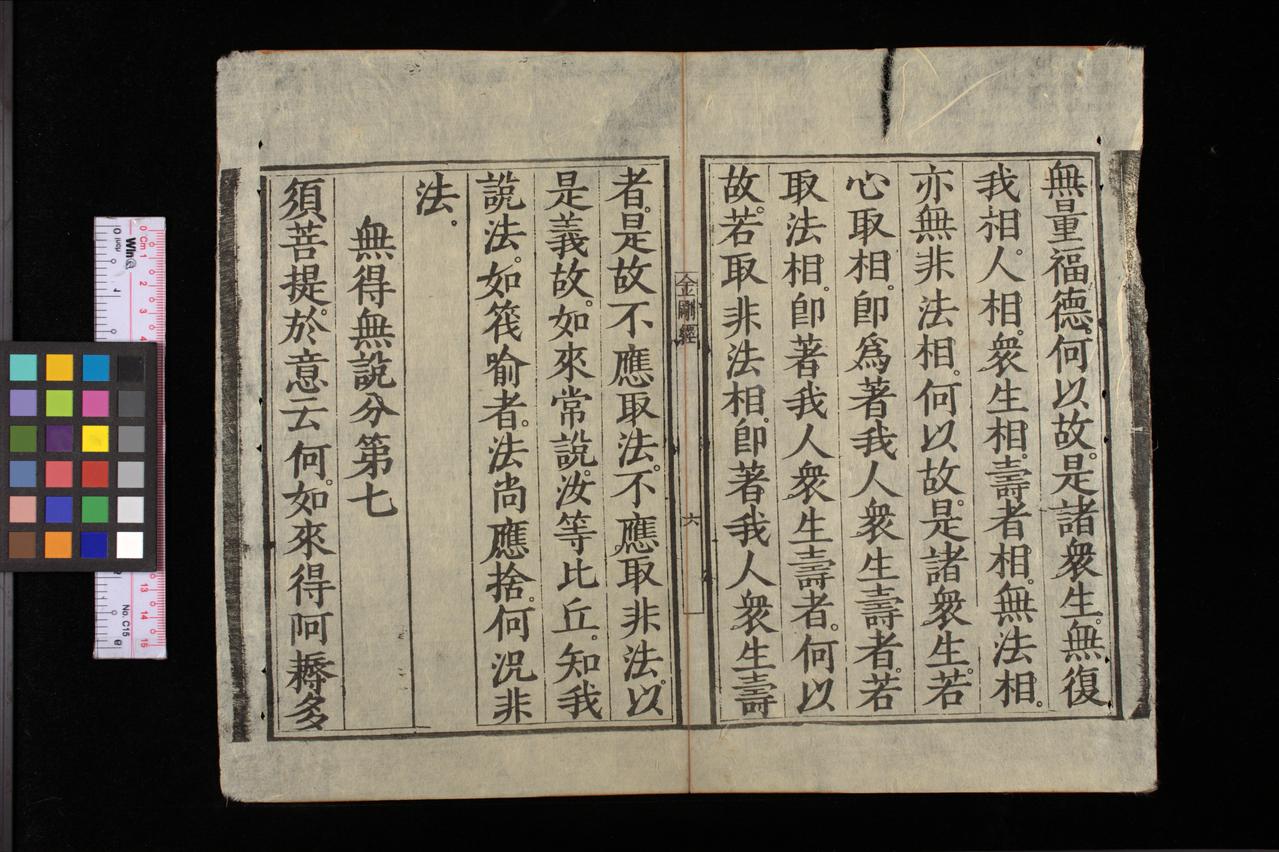 無量福德。何以故。是諸衆生。無復
我相。人相。衆生相。壽者相。無法相。
亦無非法相。何以故。是諸衆生。若
心取相。卽爲著我人衆生壽者。若
取法相。卽著我人衆生壽者。何以
故。若取非法相。卽著我人衆生壽
金剛經
六
者。是故不應取法。不應取非法。以
是義故。如來常說。汝等比丘。知我
說法。如筏喻者。法尚應捨。何況非
法。
無得無說分第七
須菩提。於意云何。如來得阿耨多
0 Cm 1
13
14
15
No. C15